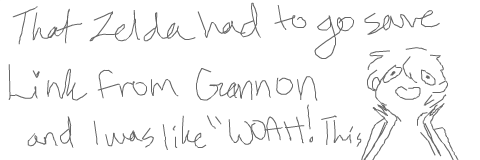 That Zelda had to go save
Link from Gannon
and I was like "WOAH! This